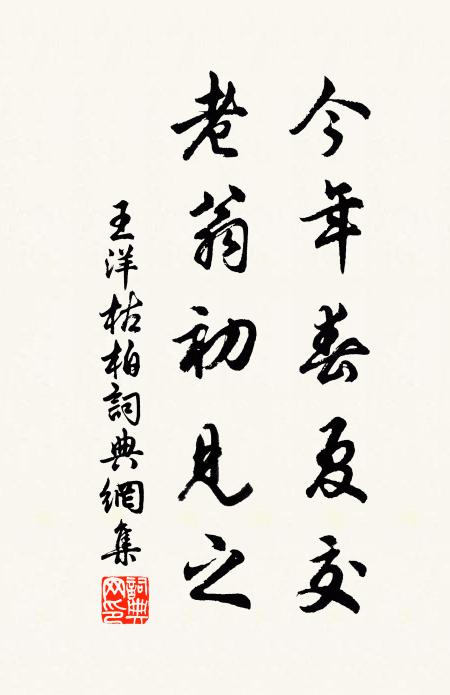 今年春夏交
老翁初見之
王洋枯柏詞典網集
詞典
网印